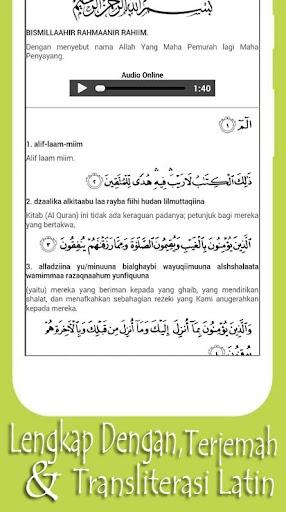 بِسْمِ اللَّهِ الرَّحْمَٰنِ الرَّحِيمِ
BISMILLAAHIR RAHMAANIR RAHIIM.
Dengan menyebut nama Allah Yang Maha Pemurah lagi Maha
Penyayang.
Audio Online
1:40
الٓمٓ ﴿١﴾
1. alif-laam-miim
Alif laam miim.
ذَٰلِكَ ٱلْكِتَٰبُ لَا رَيْبَ ۛ فِيهِ ۛ هُدًى لِّلْمُتَّقِينَ ﴿٢﴾
2. dzaalika alkitaabu laa rayba fiihi hudan lilmuttaqiina
Kitab (Al Quran) ini tidak ada keraguan padanya; petunjuk bagi mereka
yang bertakwa,
ٱلَّذِينَ يُؤْمِنُونَ بِٱلْغَيْبِ وَيُقِيمُونَ ٱلصَّلَوٰةَ وَمِمَّا رَزَقْنَٰهُمْ يُنفِقُونَ ﴿٣﴾
3. alladziina yu/minuuna bialghaybi wayuqiimuuna alshshalaata
wamimmaa razaqnaahum yunfiquuna
(yaitu) mereka yang beriman kepada yang ghaib, yang mendirikan
shalat, dan menafkahkan sebahagian rezeki yang Kami anugerahkan
kepada mereka.
وَٱلَّذِينَ يُؤْمِنُونَ بِمَآ أُنزِلَ إِلَيْكَ وَمَآ أُنزِلَ مِن قَبْلِكَ وَبِٱلْءَاخِرَةِ هُمْ
يُوقِنُونَ ﴿٤﴾
Lengkap Dengan, Terjemah
& Transliterasi Latin